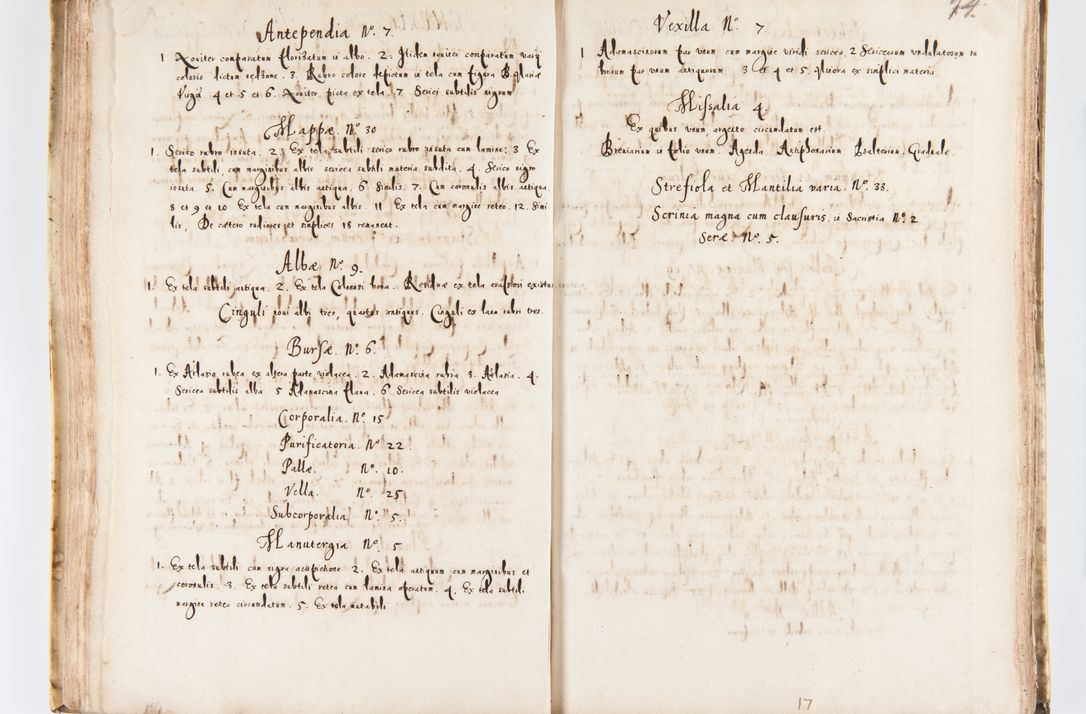 Antependia Nº. 7.
1 Noviter comparatum florisatum in albo. 2. Itidem noviter comparatum varij
coloris dictum 3. Rubro colore depictum in tela cum figura B. Mariæ
Virgis. 4 et 5 et 6. Noviter picta ex tela. 7. Serici subtilis nigrum
Mappæ. Nº 30
1. Serico rubro insuta. 2. Ex tela subtili serico rubro insuta cum lamine. 3 Ex
tela subtili, cum marginibus albis sericea subtili materia subdita. 4. Serico nigro
insuta 5. Cum marginibus albis antiqua. 6. Similis. 7. Cum coronulis albis antiqua
8 et 9 et 10 Ex tela cum marginibus albis. 11 Ex tela cum margine reteo. 12. Simi
lis. De cætero rudiores et simplices 18 remanent.
Albæ Nº. 9.
1. Ex tela subtili antiqua. 2. Ex tela Coloensi bona. Residuæ ex tela crassiori
Cinguli novi albi tres, quartus antiquus. Cinguli ex lano rubri tres.
Bursæ. Nº. 6.
1. Ex Atlasio rubea ex altera parte violacea. 2. Adamascina rubra. 3. Atlasia. 4.
Sericea subtilis alba 5 Adamascina flava. 6 Sericea subtilis violacea
Corporalia. Nº. 15
Purificatoria. Nº 22.
Pallæ. Nº. 10.
Vella. Nº. 25.
Subcorporalia Nº. 5.
Manutergia Nº. 5
1. Ex tela subtili cum nigra acupictione 2. Ex tela antiquum cum marginibus et
coronulis. 3. Ex tela subtili retea cum lamina operatum. 4. Ex tela subtili
margine reteo circumdatum. 5. Ex tela
74.
Vexilla Nº. 7.
1 Adamascinorum par unum cum margine viridi sericeo. 2 Sericeorum undulatorum ru
brorum par unum antiquorum. 3 et 4 et 5. Minora ex simplici materia.
Missalia 4.
Ex quibus unum argento circumdatum est.
Breviarium in folio unum. Agenda. Antiphonarium Psalterium. Graduale.
Strefiola et Mantilia varia. Nº. 33.
Scrinia magna cum clausuris. in Sacristia Nº. 2
Seræ. Nº. 5.
17